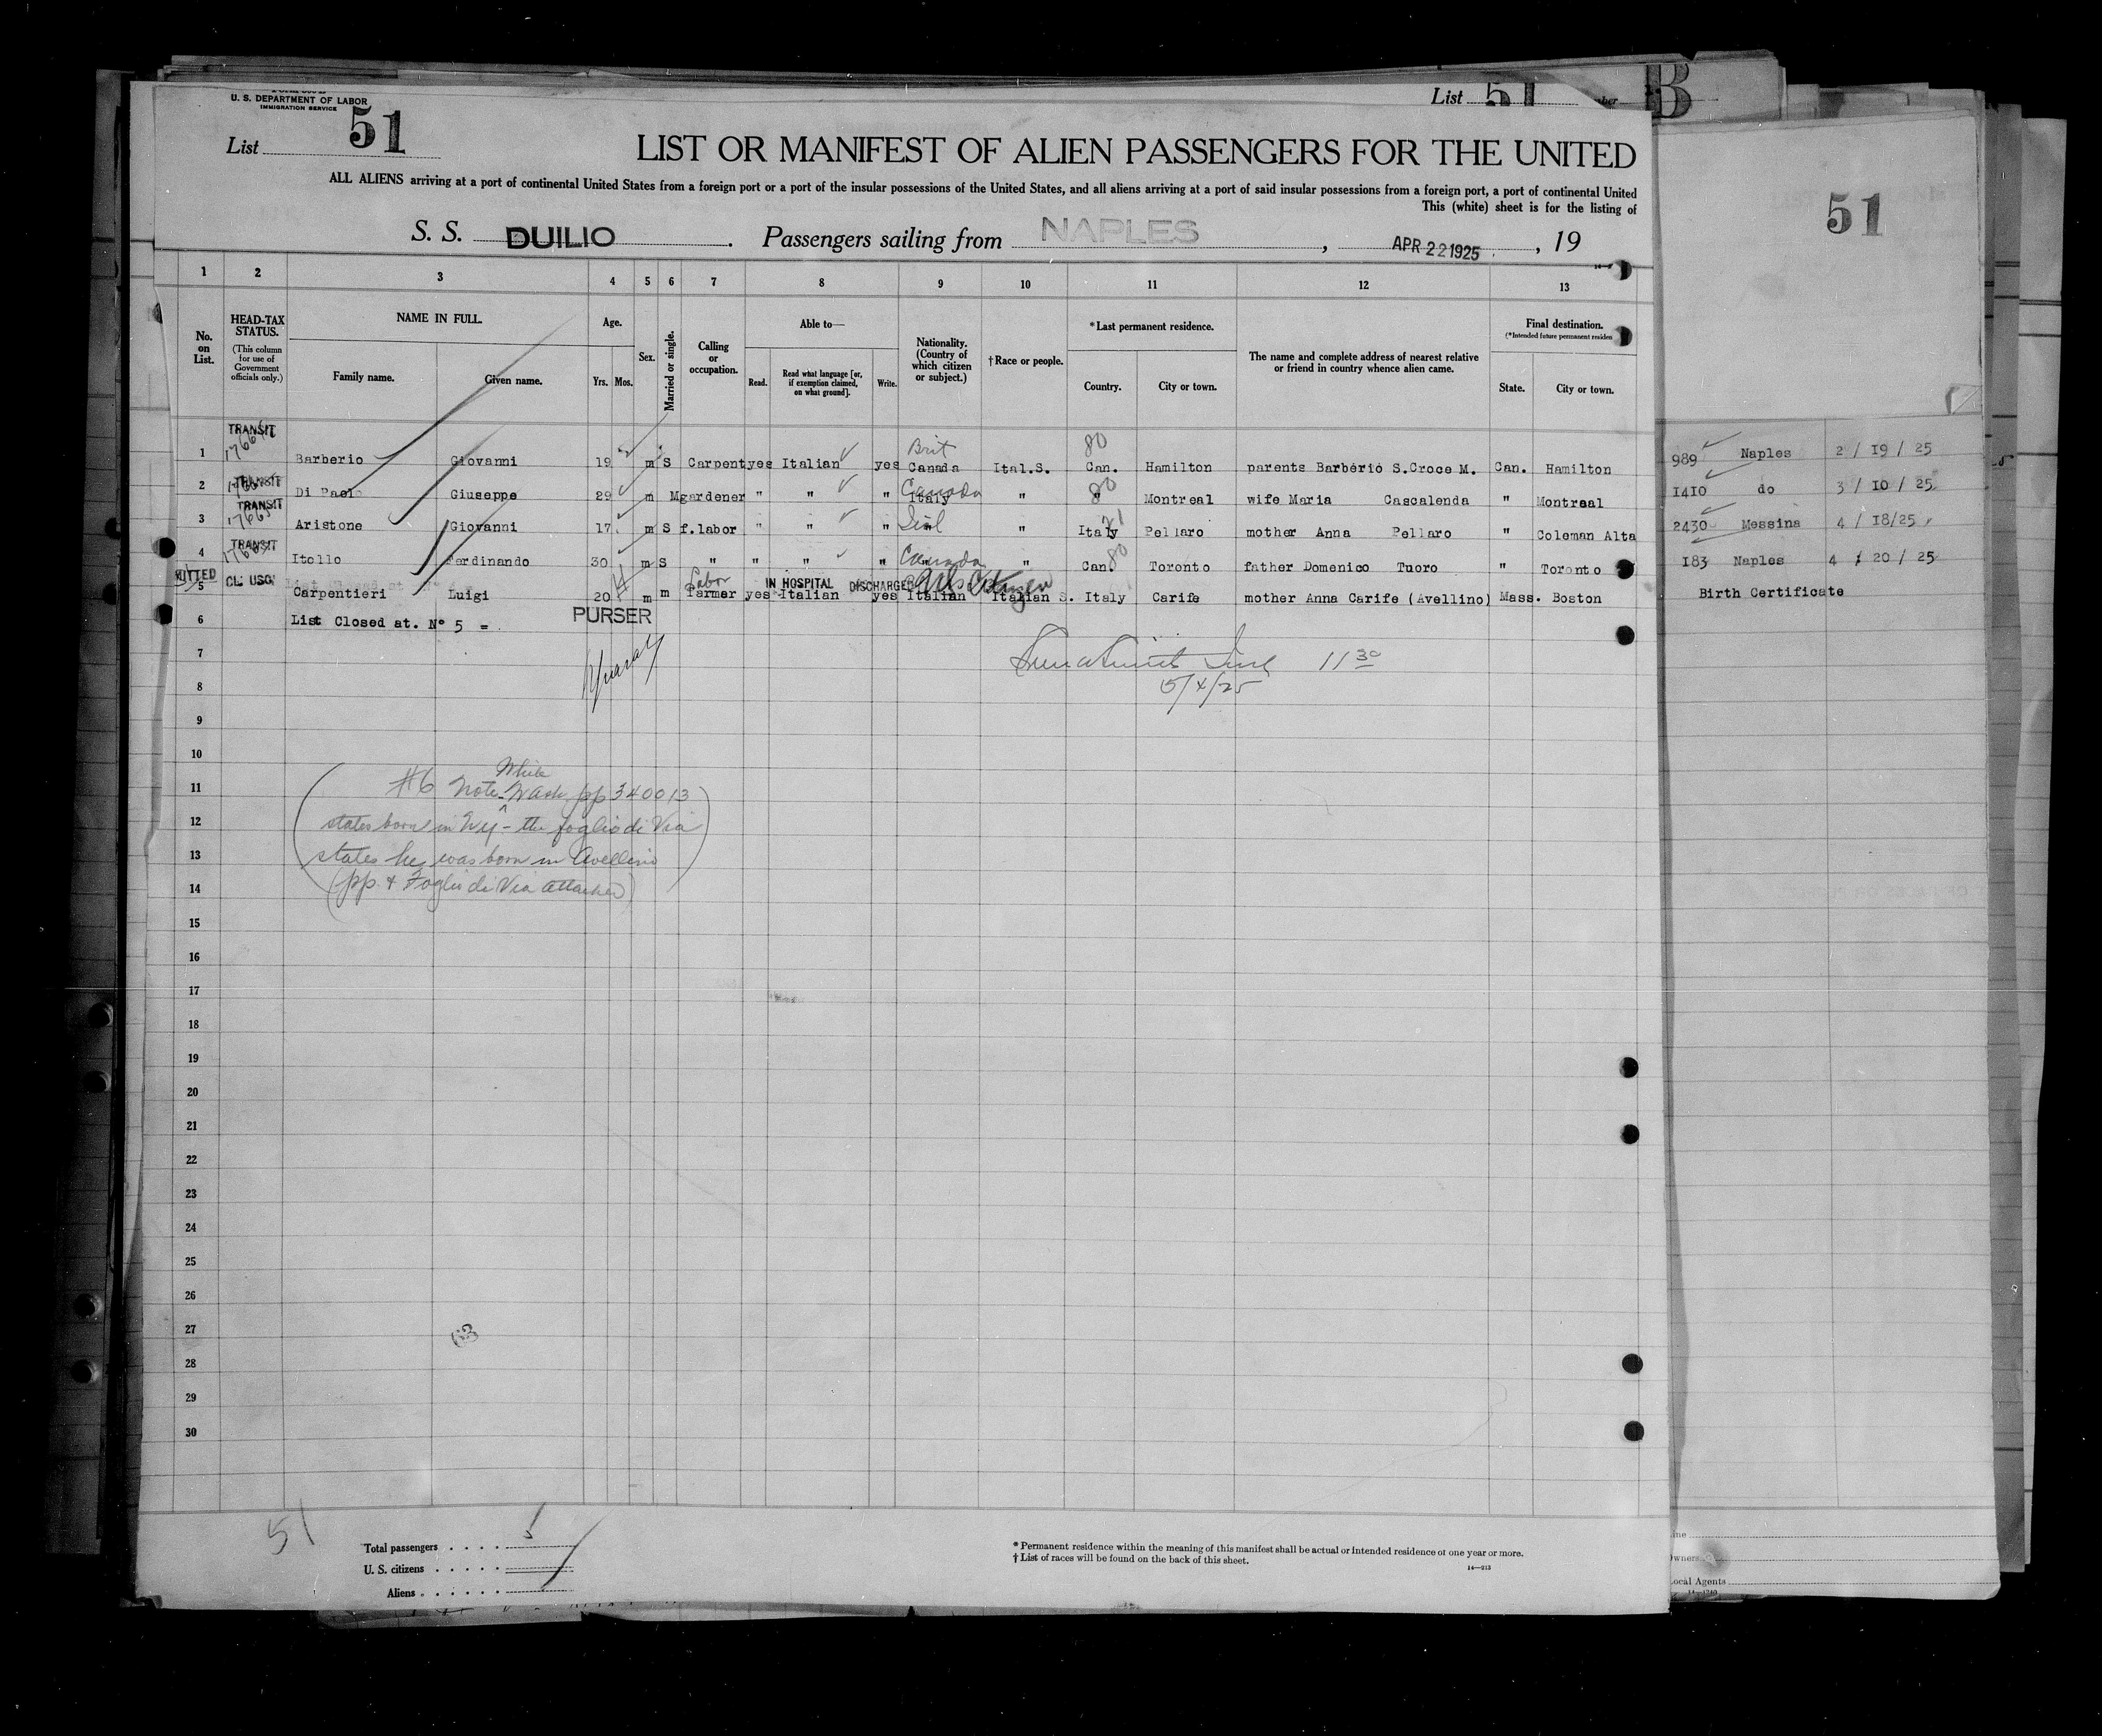 U. S. DEPARTMENT OF LABOR
IMMIGRATION SERVICE
List 51
List 51
B
51
LIST OR MANIFEST OF ALIEN PASSENGERS FOR THE UNITED
ALL ALIENS arriving at a port of continental United States from a foreign port or a port of the insular possessions of the United States, and all aliens arriving at a port of said insular possessions from a foreign port, a port of continental United
This (white) sheet is for the listing of
S. S. DUILIO. Passengers sailing from NAPLES, APR 22 1925, 19
1 2 3 4 5 6 7 8 9 10 11 12 13
No. on List. HEAD-TAX STATUS. (This column for use of Government officials only.) NAME IN FULL. Family name. Given name. Age. Yrs. Mos. Sex. Married or single. Calling or occupation. Able to— Read. Read what language [or, if exemption claimed, on what ground]. Write. Nationality. (Country of which citizen or subject.) †Race or people. *Last permanent residence. Country. City or town. The name and complete address of nearest relative or friend in country whence alien came. Final destination. (*Intended future permanent residen State. City or town.
TRANSIT Brit 80
1 Barberio Giovanni 19 m S Carpent yes Italian yes Canada Ital.S. Can. Hamilton parents Barberio S.Croce M. Can. Hamilton 989 Naples 2 / 19 / 25
TRANSIT Canada 80
2 Di Paolo Giuseppe 29 m M gardener " " " Italy " " Montreal wife Maria Cascalenda " Montreal 1410 do 3 / 10 / 25
TRANSIT
3 Aristone Giovanni 17 m S f.labor " " " " " Italy Pellaro mother Anna Pellaro " Coleman Alta 2430 Messina 4 / 18/25
TRANSIT Canada 80
4 Itollo Ferdinando 30 m S " " " " " " Can. Toronto father Domenico Tuoro " Toronto 183 Naples 4 / 20 / 25
Labor IN HOSPITAL DISCHARGED US Citizen
5 Carpentieri Luigi 20 m m Farmer yes Italian yes Italian Italian S. Italy Carife mother Anna Carife (Avellino) Mass. Boston Birth Certificate
6 List Closed at. Nº 5 = PURSER
7 11 30
8 5/4/25
9
10
White
11 #6 Note Wash pp 340013
12 states born in NY - the foglio di Via
13 states he was born in Avellino
14 (pp. & Foglio di Via attached)
15
16
17
18
19
20
21
22
23
24
25
26
27 63
28
29
30
51
Total passengers 5
U. S. citizens
Aliens
* Permanent residence within the meaning of this manifest shall be actual or intended residence of one year or more.
† List of races will be found on the back of this sheet.
14—213
Owners
Local Agents